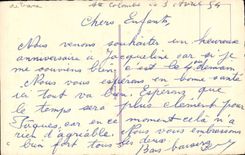 Ste Colombe le 3 Avril 54
Chers Enfants,
Nous venons souhaiter un heureux
anniversaire a Jacqueline car si je
me souviens bien c'est le demain
Nous vous espérons en bonne santé
ici tout va bien. Espérons que
le temps sera plus clément pour
Pâques, car en ce moment cela n'a
rien d'agréable. Nous vous embrassons
bien fort tous les deux.
Bons baisers